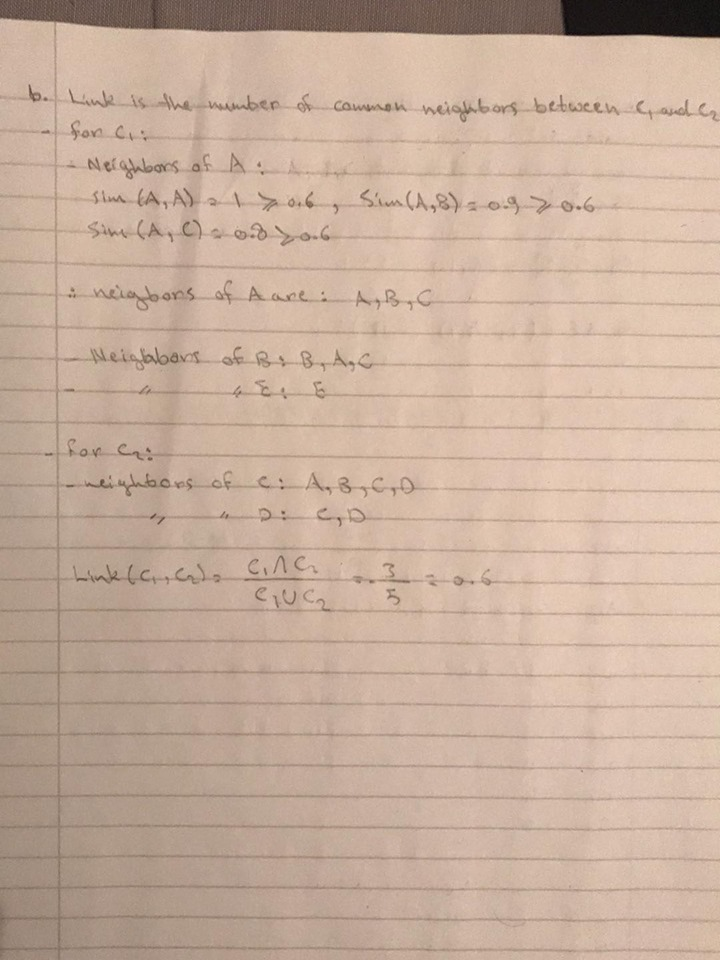 b. Link is the number of common neighbors between C₁ and C₂
- for C₁:
- Neighbors of A:
Sim (A, A) = 1 ≥ 0.6 , Sim (A, B) = 0.9 ≥ 0.6
Sim (A, C) = 0.8 ≥ 0.6
∴ neigbors of A are : A, B, C
- Neighbors of B: B, A, C
- " " E: E
- for C₂:
- neighbors of C: A, B, C, D
" " D: C, D
Link (C₁, C₂) = C₁ ∩ C₂ / C₁ ∪ C₂ = 3/5 = 0.6